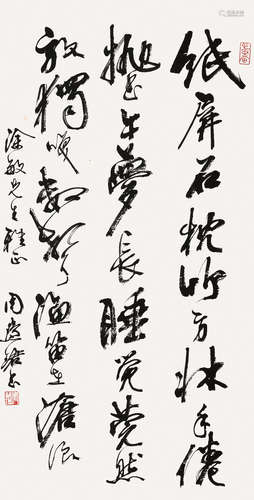 纸屏石枕竹方床手倦
抛书午梦长睡觉莞然
放独咲数声渔笛在沧浪
涂敏先生雅正